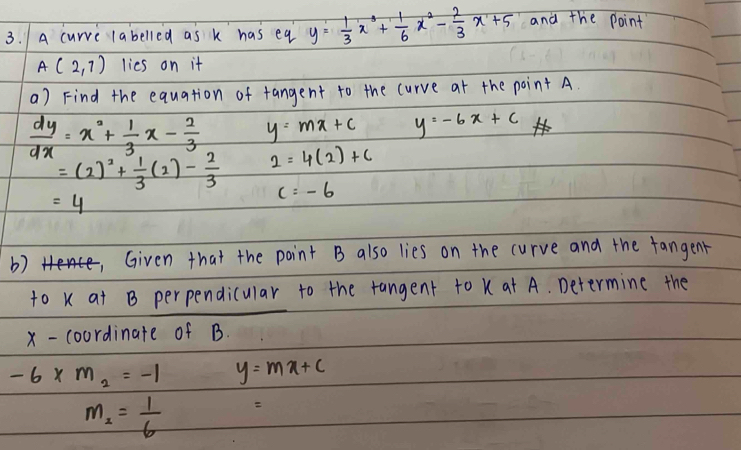 3. A curve labelled as K has eq y = 1/3 x³ + 1/6 x² - 2/3 x + 5 and the point
A (2,7) lies on it
a) Find the equation of tangent to the curve at the point A.
dy/dx = x² + 1/3 x - 2/3    y = mx + c    y = -6x + c #
= (2)² + 1/3 (2) - 2/3    2 = 4(2) + c
= 4    c = -6
b) Hence, Given that the point B also lies on the curve and the tangent
to K at B perpendicular to the tangent to K at A. Determine the
x - coordinate of B.
-6 × m₂ = -1    y = mx + c
m₂ = 1/6    =